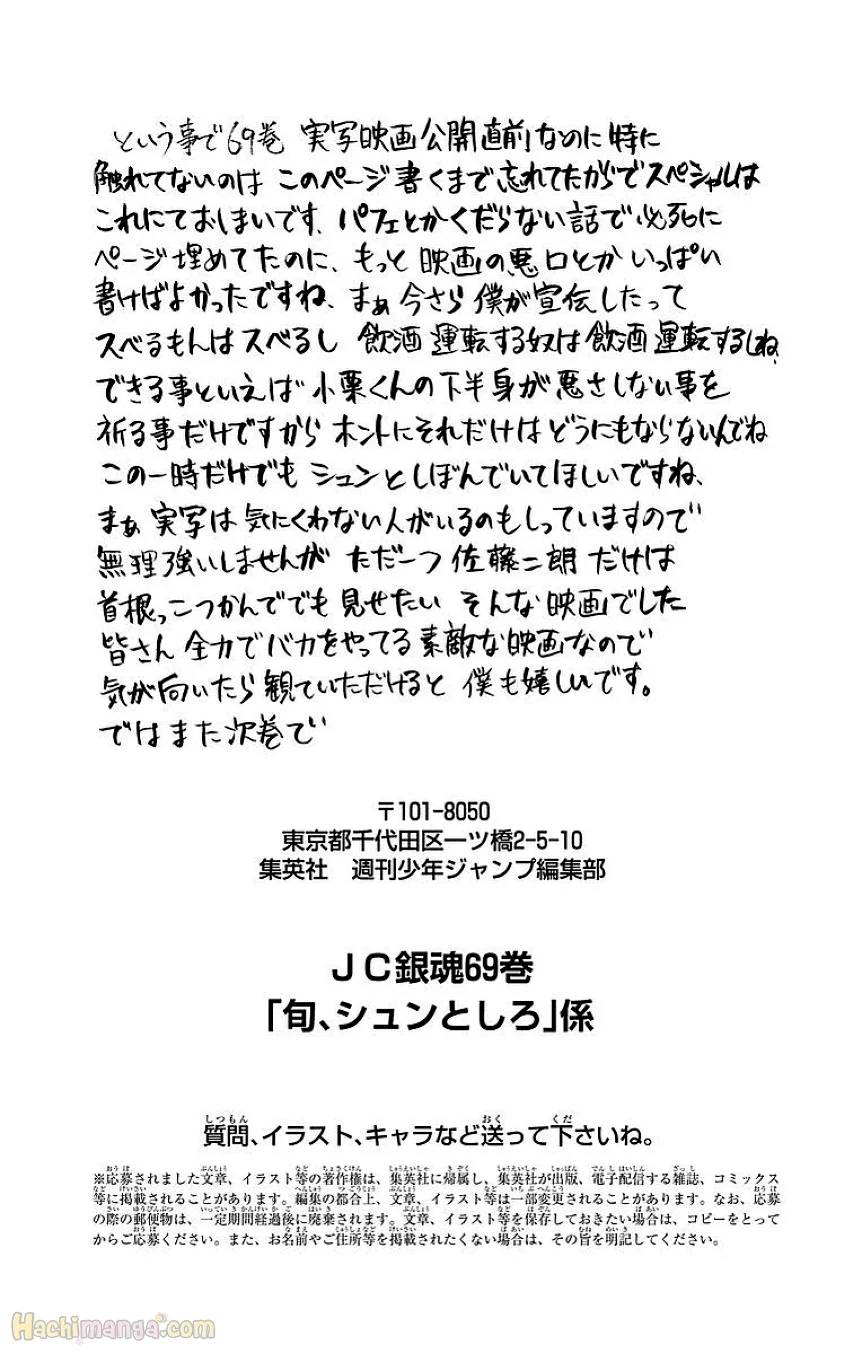 という事で69巻 実写映画公開直前なのに特に
触れてないのは このページ書くまで忘れてたからでスペシャルは
これにておしまいです、パフェとかくだらない話で必死に
ページ埋めてたのに、もっと 映画の悪口とか いっぱい
書けばよかったですね、まぁ今さら僕が宣伝したって
スベるもんはスベるし 飲酒運転する奴は飲酒運転するしね、
できる事といえば 小栗くんの下半身が悪さしない事を
祈る事だけですから ホントにそれだけはどうにもならないんでね
この一時だけでも シュンとしぼんでいてほしいですね、
まぁ 実写は気にくわない人がいるのもしっていますので
無理強いしませんが ただ一つ 佐藤二朗 だけは
首根っこつかんででも 見せたい そんな映画でした
皆さん 全力でバカをやってる素敵な映画なので
気が向いたら観ていただけると 僕も嬉しいです。
ではまた次巻で
〒101-8050
東京都千代田区一ツ橋2-5-10
集英社 週刊少年ジャンプ編集部
JC銀魂69巻
「旬、シュンとしろ」係
質問、イラスト、キャラなど送って下さいね。
※応募されました文章、イラスト等の著作権は、集英社に帰属し、集英社が出版、電子配信する雑誌、コミックス
等に掲載されることがあります。編集の都合上、文章、イラスト等は一部変更されることがあります。なお、応募
の際の郵便物は、一定期間経過後に廃棄されます。文章、イラスト等を保存しておきたい場合は、コピーをとって
からご応募ください。また、お名前やご住所等を掲載されたくない場合は、その旨を明記してください。
Hachimanga.com